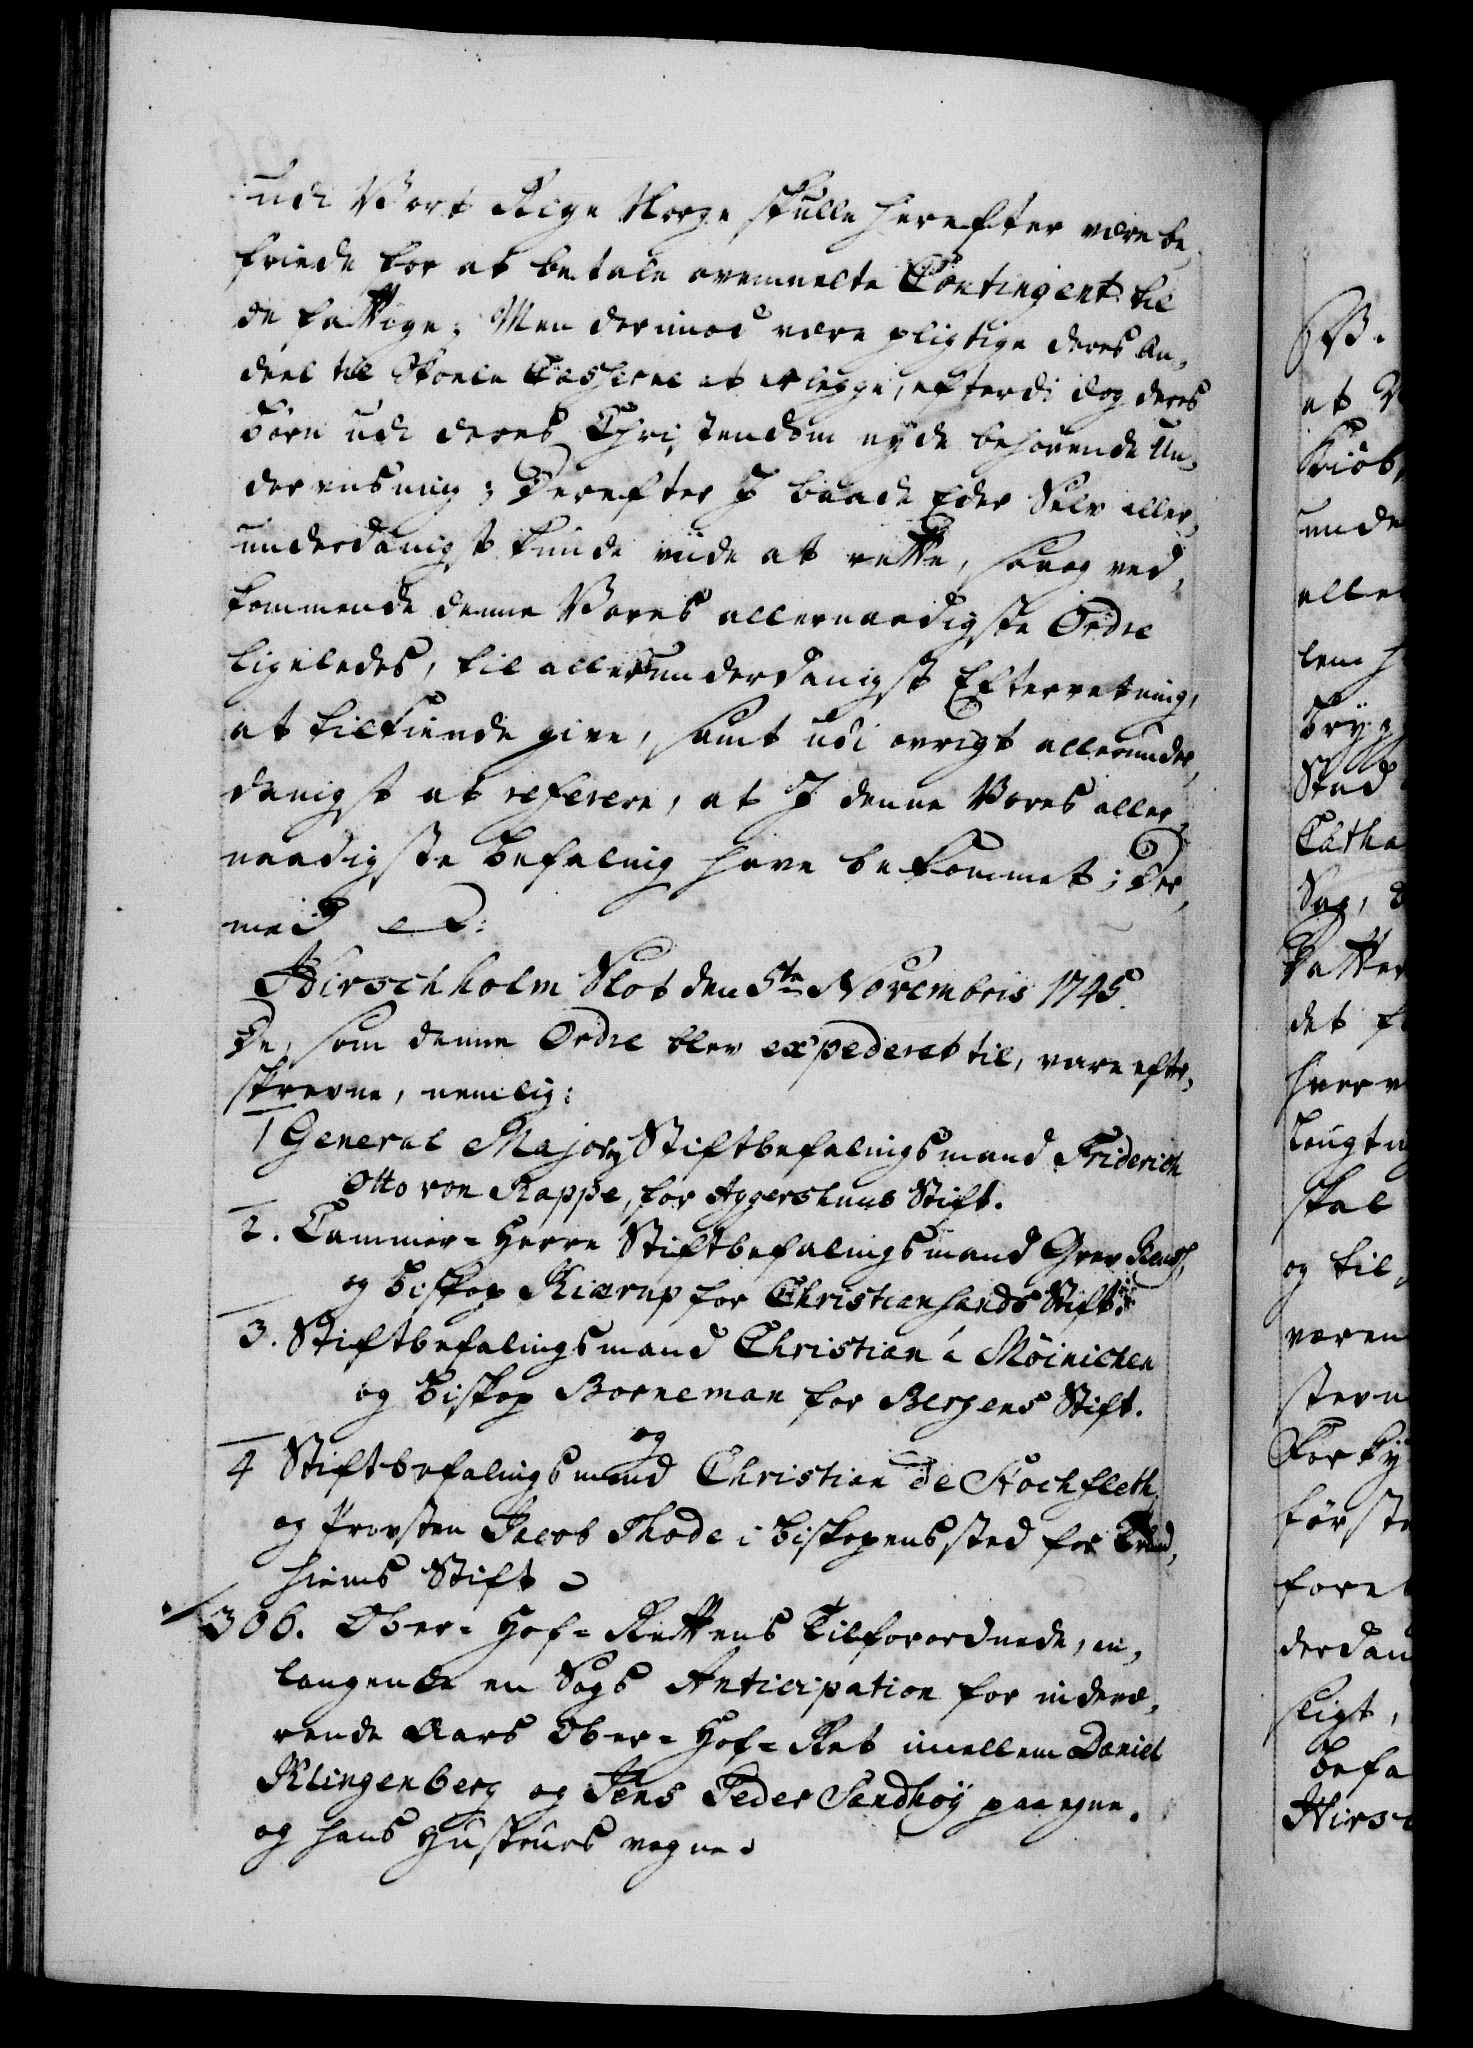 udi Vort Rige Norge skulle herefter være be„
friede for at betale ovennelte Contingent til
de fattige; Men derimod være pligtige deres An„
deel til Skole Casserne at erlegge, efterdi dog deres
Børn udi deres Christendom nyde behørende Un„
derviisning; Derefter I baade Eder Selv aller„
underdanigst kunde viide at rette, saa og ved„
kommende denne Vores allernaadigste Ordre
ligeledes, til allerunderdanigst Efterretning,
at tilkiende give, samt udi øvrigt allerunder„
danigst at referere, at I denne Vores aller„
naadigste Befaling have bekommet; Der„
med etc:
Hirschholm Slot den 5te Novembris 1745.
De, som denne Ordre blev expederet til, vare efter„
skrevne, nemlig:
1 General Major og Stiftbefalingsmand Friderich
Otto von Rappe, for Aggershuus Stift.
2. Cammer= Herre Stiftbefalingsmand Grev
og Biskop Kiærup for Christiansands Stift.
3. Stiftbefalingsmand Christian á Möinichen
og Biskop Borneman for Bergens Stift.
4 Stiftbefalingsmand og Christian de Stochfleth,
og Provsten Jacob Thode i Biskopens sted for Trond„
hiems Stift
306. Ober= Hof= Rettens Tilforordnede, an„
langende en Sags Anticipation for indevæ„
rende Aars Ober= Hof= Ret imellem Daniel
Klingenberg og Jens Peder Sandhöy paa egne.
og hans Hustrues vegne.
W.
at
Kiøb
unde
aller
lem
Bryg
Stad
Catha
Sag,
det
hver
skal
og til„
været
første
foret
derdan
sligt,
Befa
Hirsc